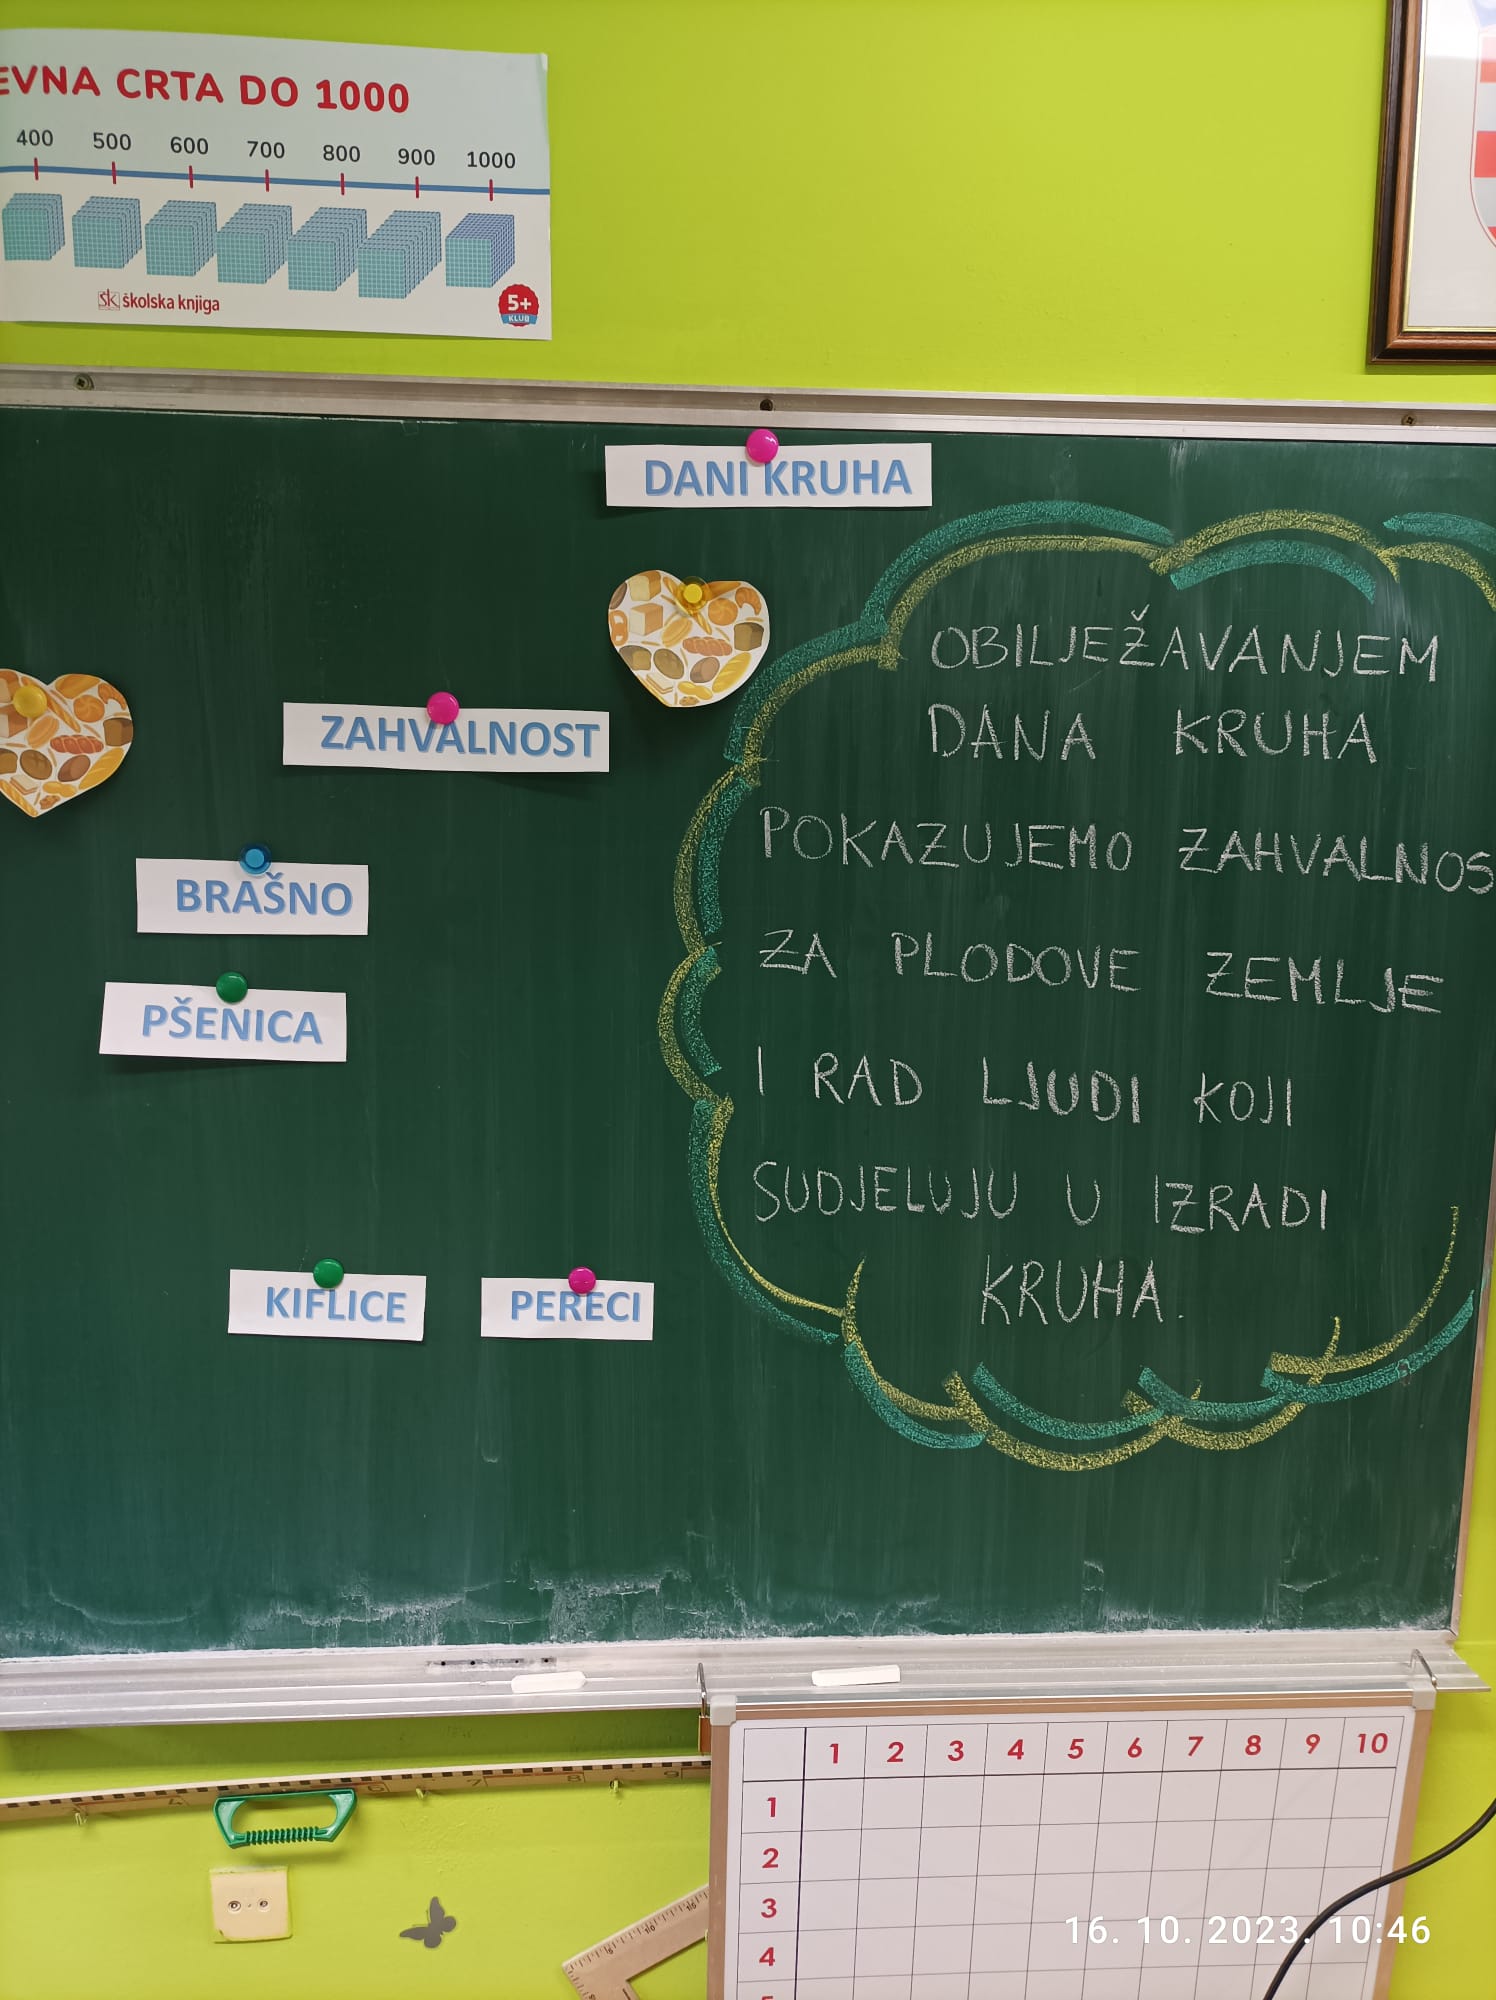 EVNA CRTA DO 1000
400 500 600 700 800 900 1000
šk školska knjiga
5+
KLUB
DANI KRUHA
ZAHVALNOST
BRAŠNO
PŠENICA
KIFLICE
PERECI
OBILJEŽAVANJEM
DANA KRUHA
POKAZUJEMO ZAHVALNOS
ZA PLODOVE ZEMLJE
I RAD LJUDI KOJI
SUDJELUJU U IZRADI
KRUHA.
1 2 3 4 5 6 7 8 9 10
1
2
3
4
16. 10. 2023. 10:46